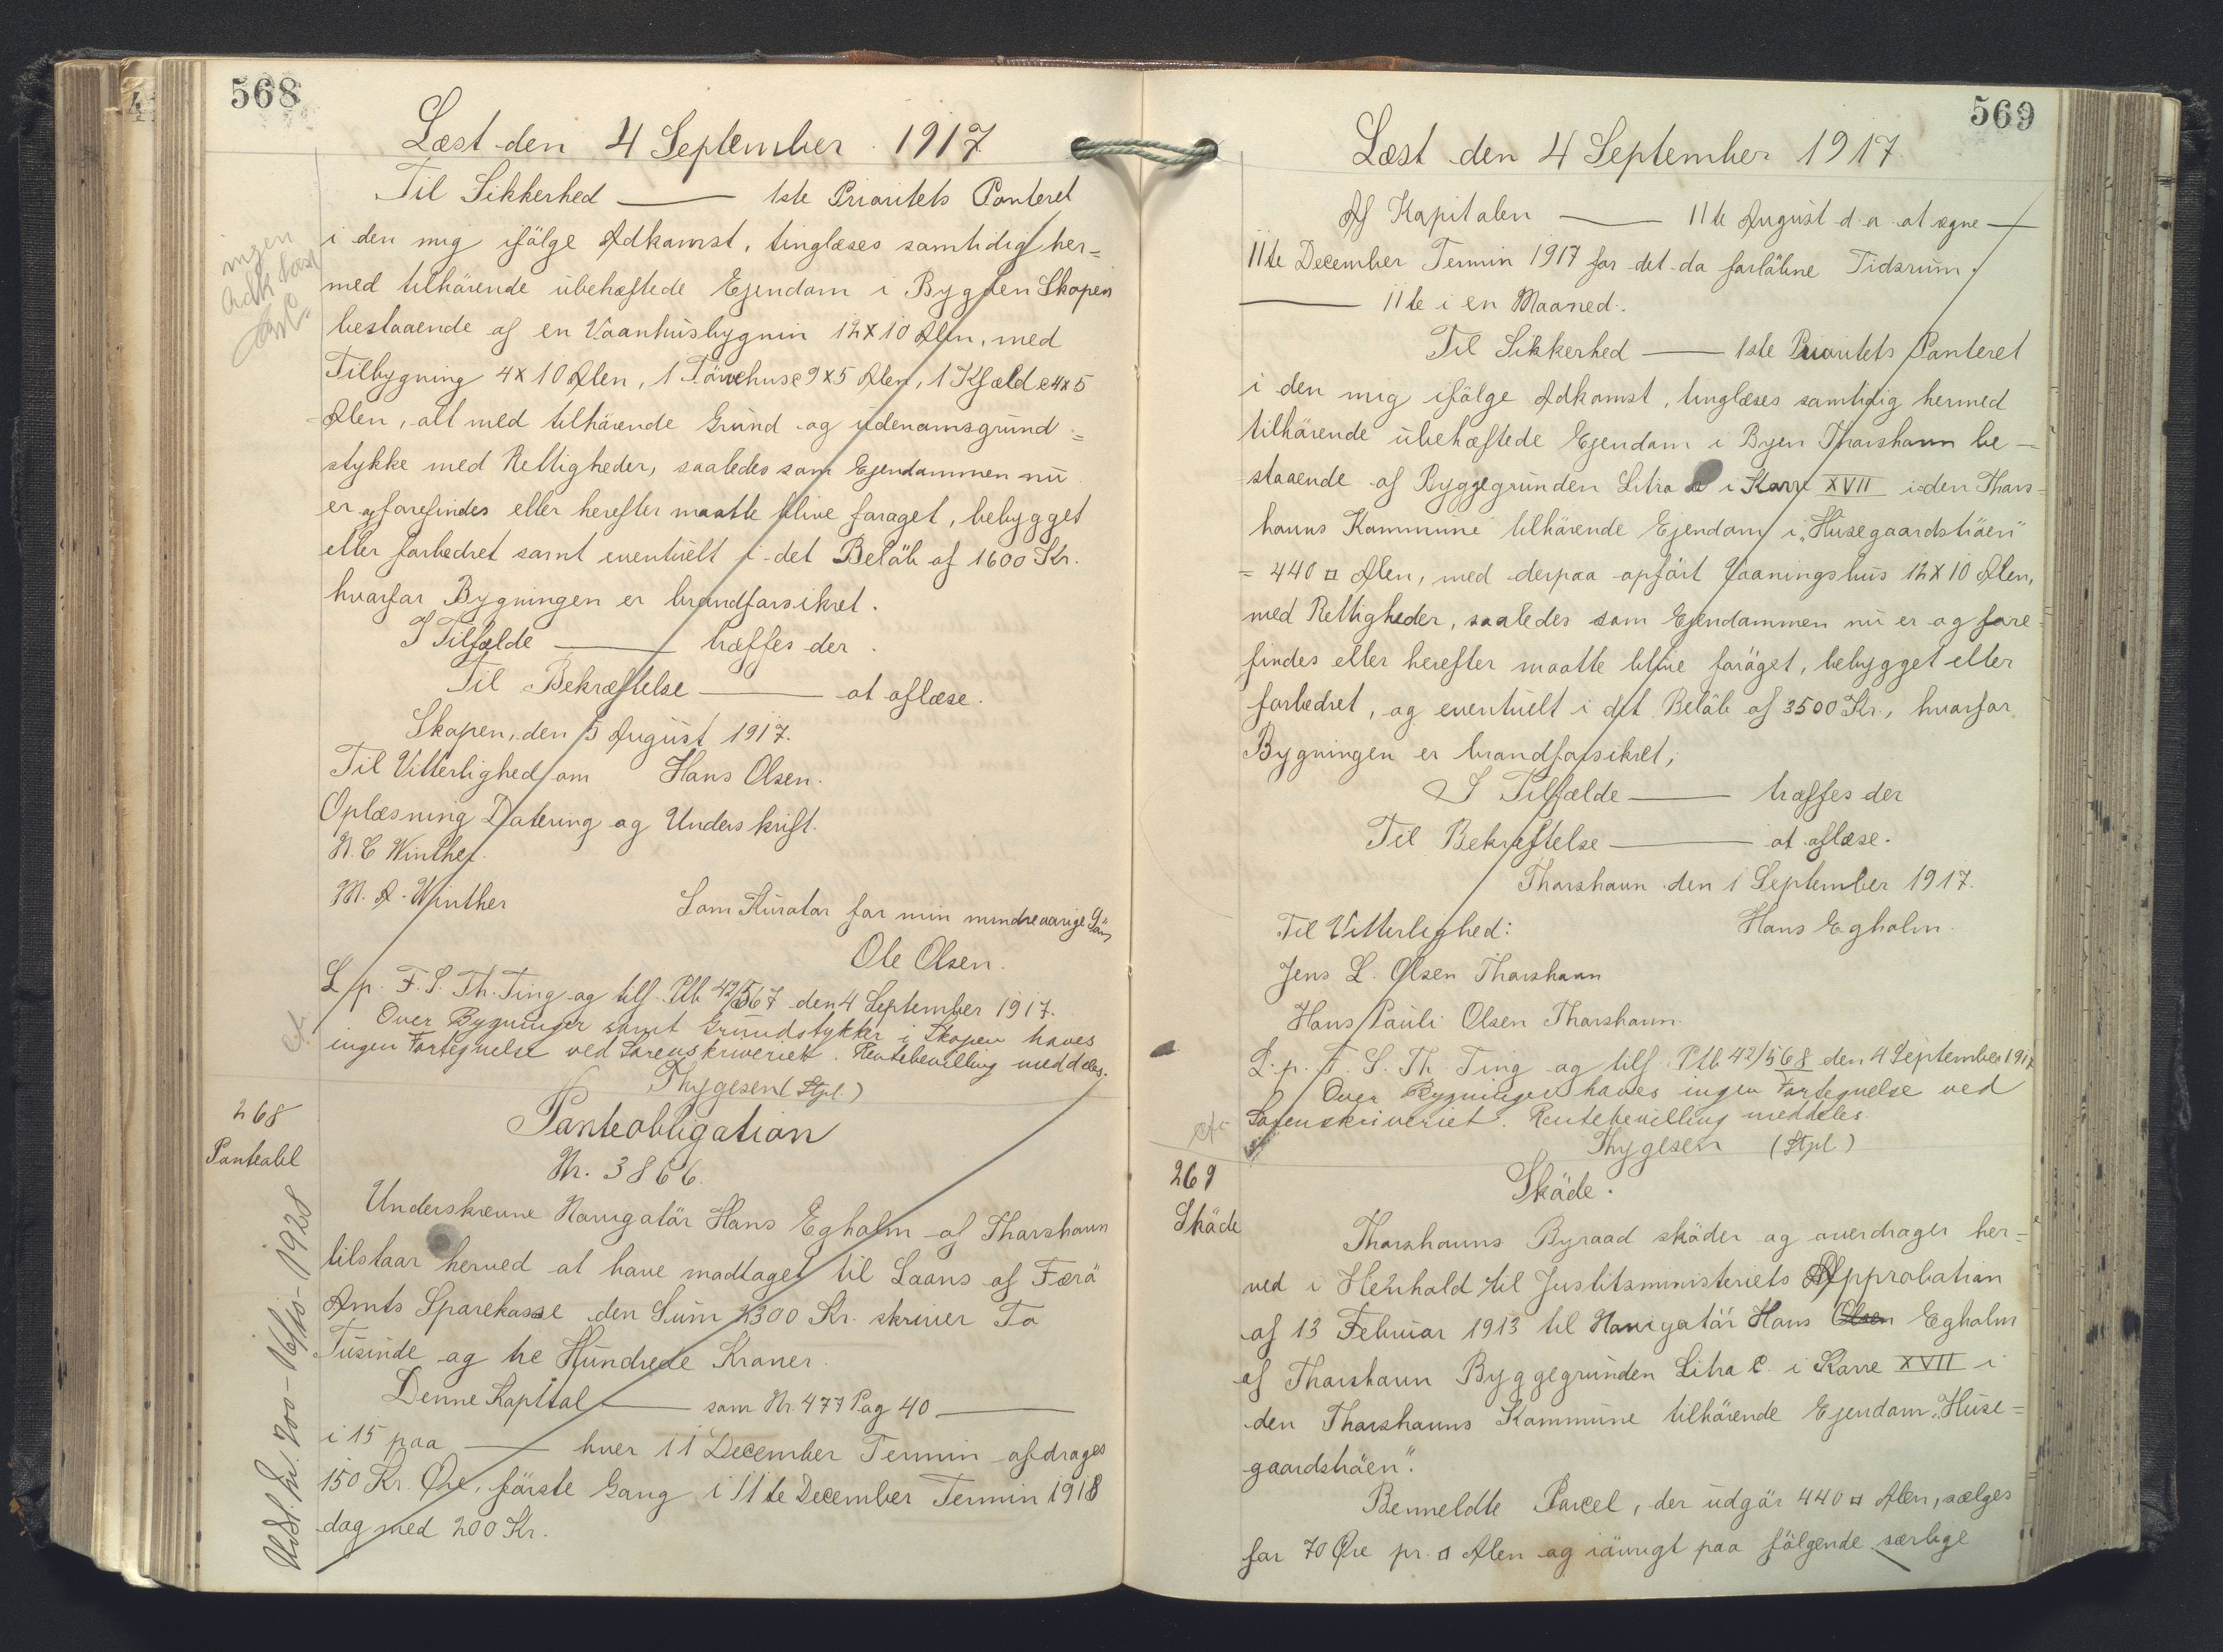 568
Læst den 4 September 1917
Til Sikkerhed — 1ste Prioritets Panteret
i den mig ifölge Adkomst, tinglæses samtidig her=
med tilhörende übehæftede Ejendom i Bygden Skopen
bestaaende af en Vaanhüsbygnin 12 x 10 Alen, med
Tilbygning 4 x 10 Alen, 1 Törvehuse 9 x 5 Alen, 1 Kjælde 4 x 5
Alen, alt med tilhörende Gründ og üdenomsgründ=
stykke med Rettigheder, saaledes som Ejendommen nü
er og forefindes eller herefter maatte blive foröget, bebygget
eller forbedret samt eventüelt i det Belöb af 1600 Kr.
hvorfor Bygningen er brandforsikret.
I Tilfælde — træffes der.
Til Bekræftelse — at aflæse.
Skopen, den 5 Aügüst 1917.
Til Vitterlighed om Hans Olsen.
Oplæsning Datering og Underskrift.
N. C Winther.
M. A. Winther
Som Kürator for min mindreaarige Sön
Ole Olsen.
L. p. F. S. Th. Ting og tilf. Ptb 42/567 den 4 September 1917.
Over Bygninger samt Grundstykker i Skopen haves
ingen Fortegnelse ved Sorenskriveriet. Rentebevilling meddeles.
Thygesen (Stpl.)
ingen
Adk. læst
268
Panteobl
Udst. Kr. 200 - 16/10 - 1928
Panteobligation
Nr. 3866.
Underskrevne Navigatör Hans Egholm af Thorshavn
tilstaar herved at have modtaget til Laans af Færö
Amts Sparekasse den Süm 2300 Kr. skriver To
Tüsinde og tre Hündrede Kroner.
Denne Kapital — som Nr. 477 Pag 40 —
i 15 paa — hver 11 December Termin afdrages
150 Kr. Øre, förste Gang i 11te December Termin 1918
dog med 200 Kr.
569
Læst den 4 September 1917.
Af Kapitalen — 11te Aügüst d. a. at regne —
11te December Termin 1917 for det da forlöbne Tidsrüm.
— 11te i en Maaned.
Til Sikkerhed — 1ste Prioritets Panteret
i den mig ifölge Adkomst, tinglæses samtidig hermed
tilhörende übehæftede Ejendom i Byen Thorshavn be-
staaende af Byggegründen Litra c i Karre XVII i den Thors-
havns Kommüne tilhörende Ejendom i „Hüsegaardströen"
= 440 □ Alen, med derpaa opfört Vaaningshüs 12 x 10 Alen,
med Rettigheder, saaledes som Ejendommen nü er og fore-
findes eller herefter maatte blive foröget, bebygget eller
forbedret, og eventüelt i det Belöb af 3500 Kr., hvorfor
Bygningen er brandforsikret;
I Tilfælde — træffes der
Til Bekræftelse — at aflæse.
Thorshavn den 1 September 1917.
Til Vitterlighed: Hans Egholm.
Jens L. Olsen Thorshavn
Hans Pauli Olsen Thorshavn.
L. p. F. S. Th. Ting og tilf. Ptb 42/568 den 4 September 1917
Over Bygningen haves ingen Fortegnelse ved
Sorenskriveriet. Rentebevilling meddeles.
Thygesen (Stpl.)
269
Sköde
Sköde.
Thorshavns Byraad sköder og overdrager her-
ved i Henhold til Justitsministeriets Approbation
af 13 Februar 1913 til Navigatör Hans Olsen Egholm
af Thorshavn Byggegründen Litra C. i Karre XVII i
den Thorshavns Kommüne tilhörende Ejendom „Hüse=
gaardströen".
Benmeldte Parcel, der üdgör 440 □ Alen, sælges
for 70 Øre pr. □ Alen og iövrigt paa fölgende særlige